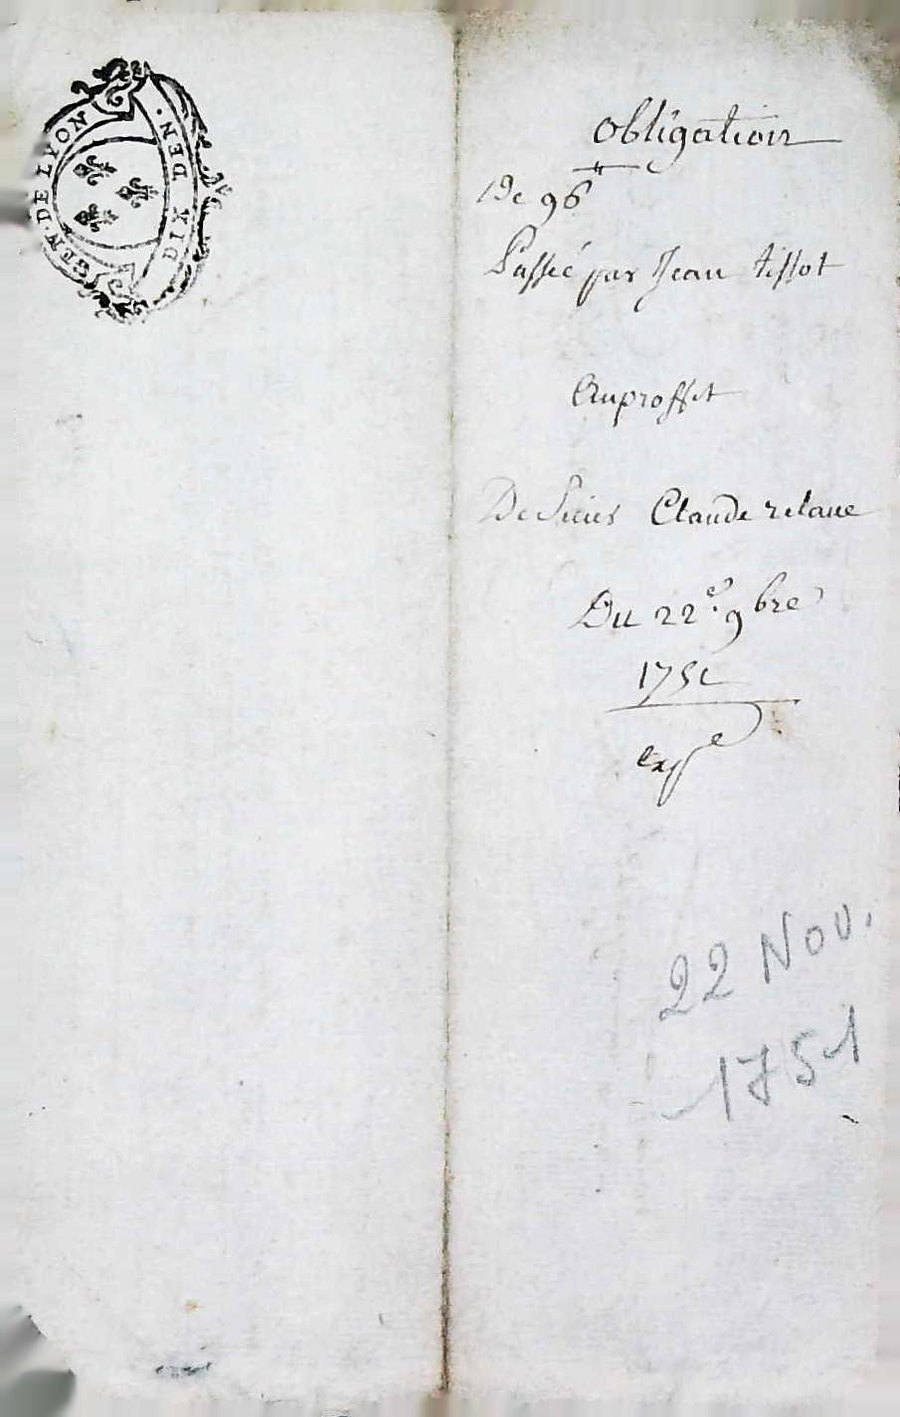 GEN. DE LYON
DIX DEN.
obligation
De 96ᵗᵗ
Passé par Jean tissot
Auproffit
De Sieur Claude relaue
Du 22ᵉ. 9bre
1751
expᵉ
22 Nov.
1751